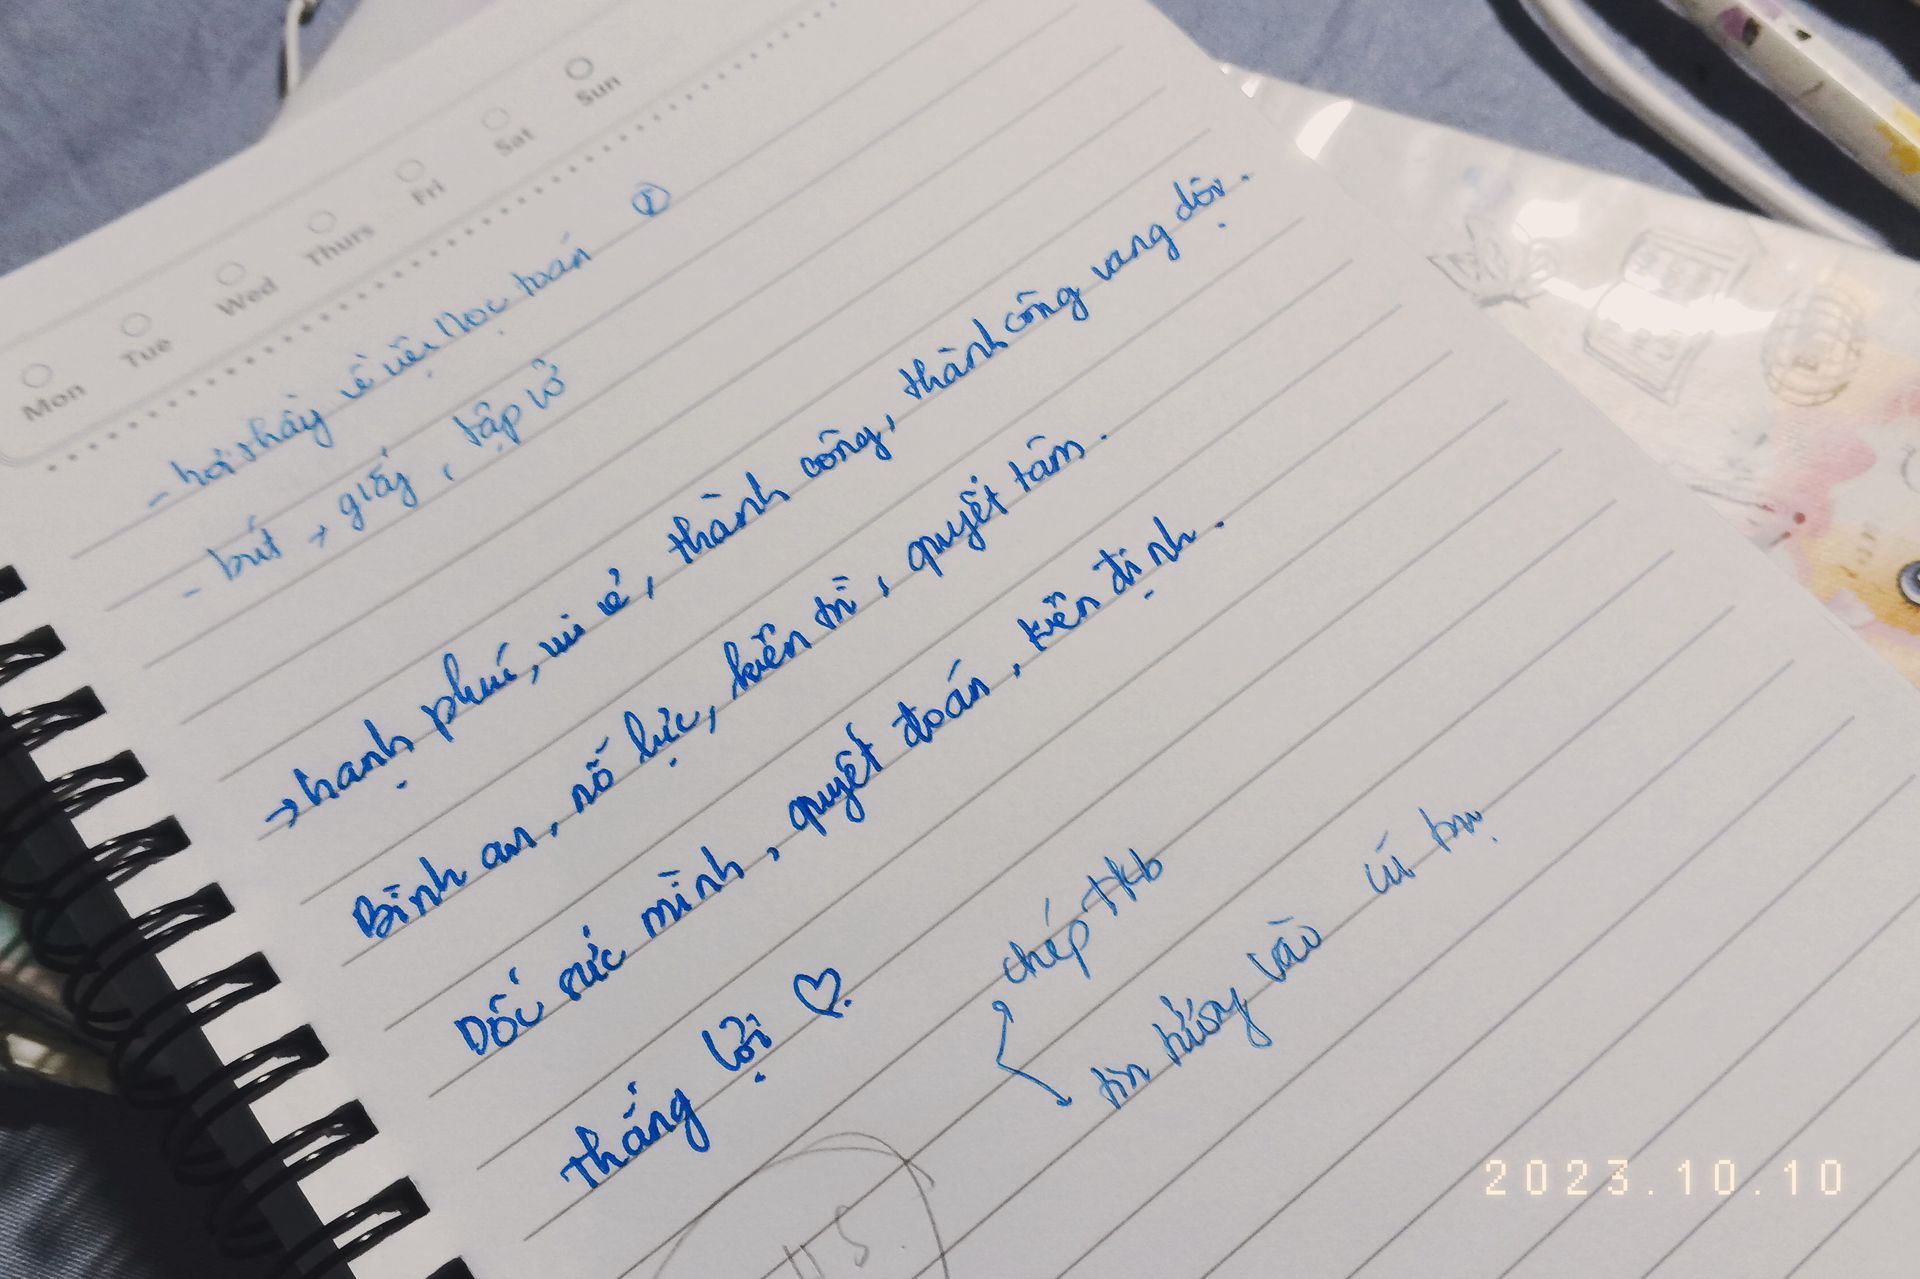 Mon Tue Wed Thurs Fri Sat Sun
- hỏi thầy về việc học toán
- bút + giấy, tập vở
→ hạnh phúc, vui vẻ, thành công, thành công vang dội.
Bình an, nỗ lực, kiên trì, quyết tâm.
Dốc sức mình, quyết đoán, kiên định.
Thắng lợi ♡.
chép tkb
tin tưởng vào vũ trụ
2023.10.10